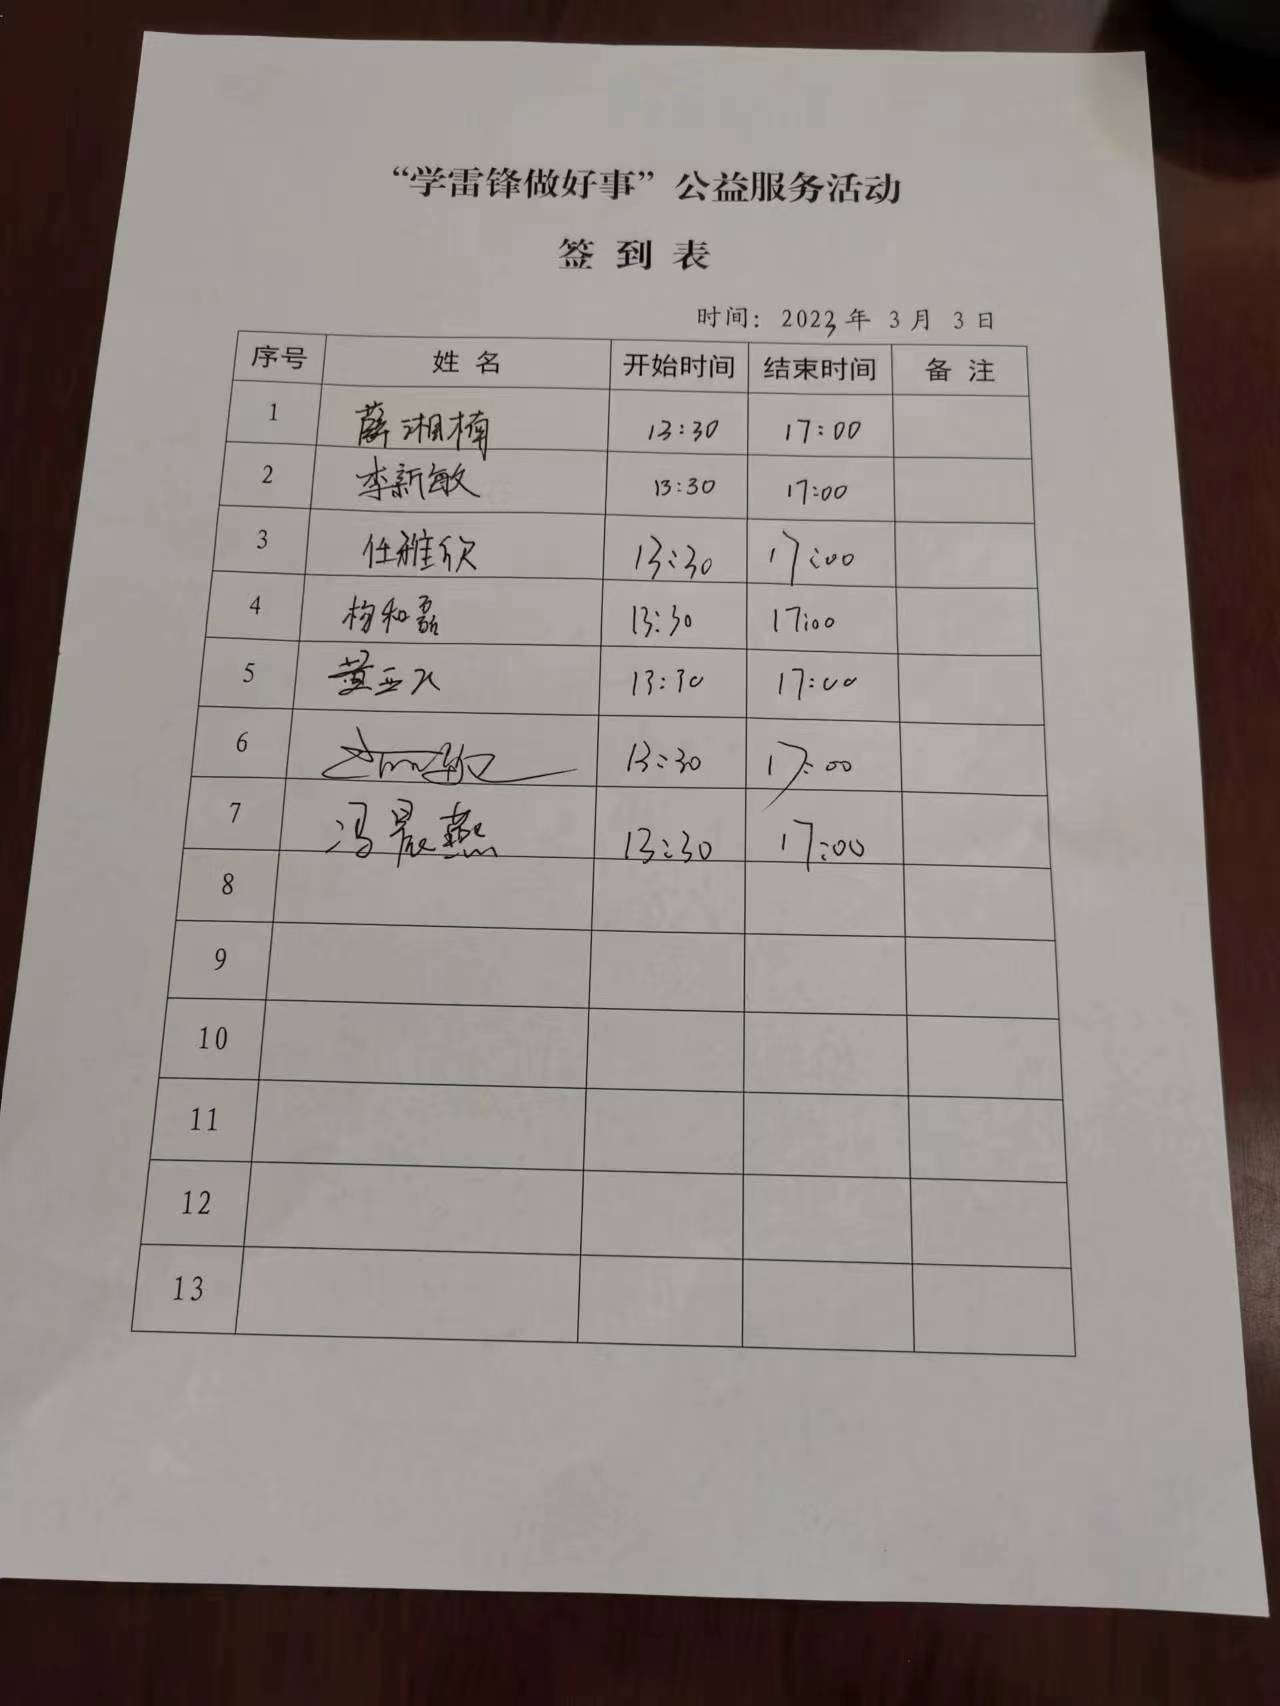 “学雷锋做好事”公益服务活动
签到表
时间：2023年 3月 3日
序号 姓名 开始时间 结束时间 备注
1 薛湘楠 13:30 17:00
2 李新敏 13:30 17:00
3 任雅欣 13:30 17:00
4 杨和磊 13:30 17:00
5 黄亚 13:30 17:00
6 13:30 17:00
7 冯晨燕 13:30 17:00
8
9
10
11
12
13